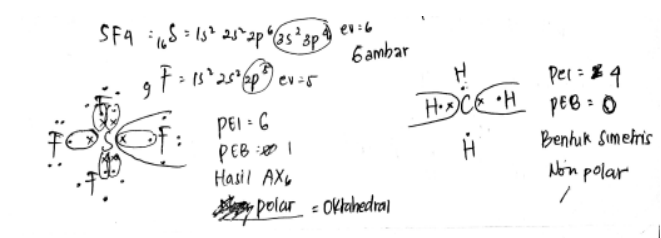 SF4 : ₁₆S = 1s² 2s² 2p⁶ 3s² 3p⁴ ev = 6
Gambar
₉F = 1s² 2s² 2p⁵ ev = 5
F
F S F:
F
PEI = 6
PEB = 1
Hasil AX₆
polar = Oktahedral
H
H C H
H
PEI = 4
PEB = 0
Bentuk Simetris
Non polar